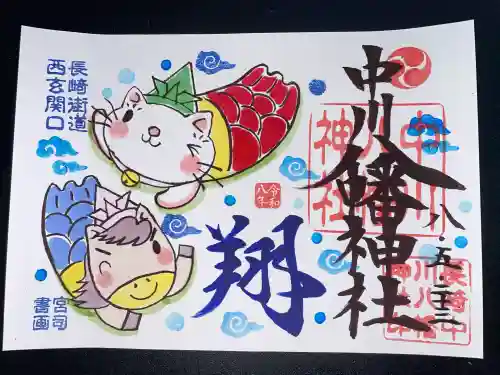 中川八幡神社
八・五・二三
中川八幡神社
長崎中
川八幡
神社印
令和
八年
翔
長崎街道
西玄関口
宮司
書画